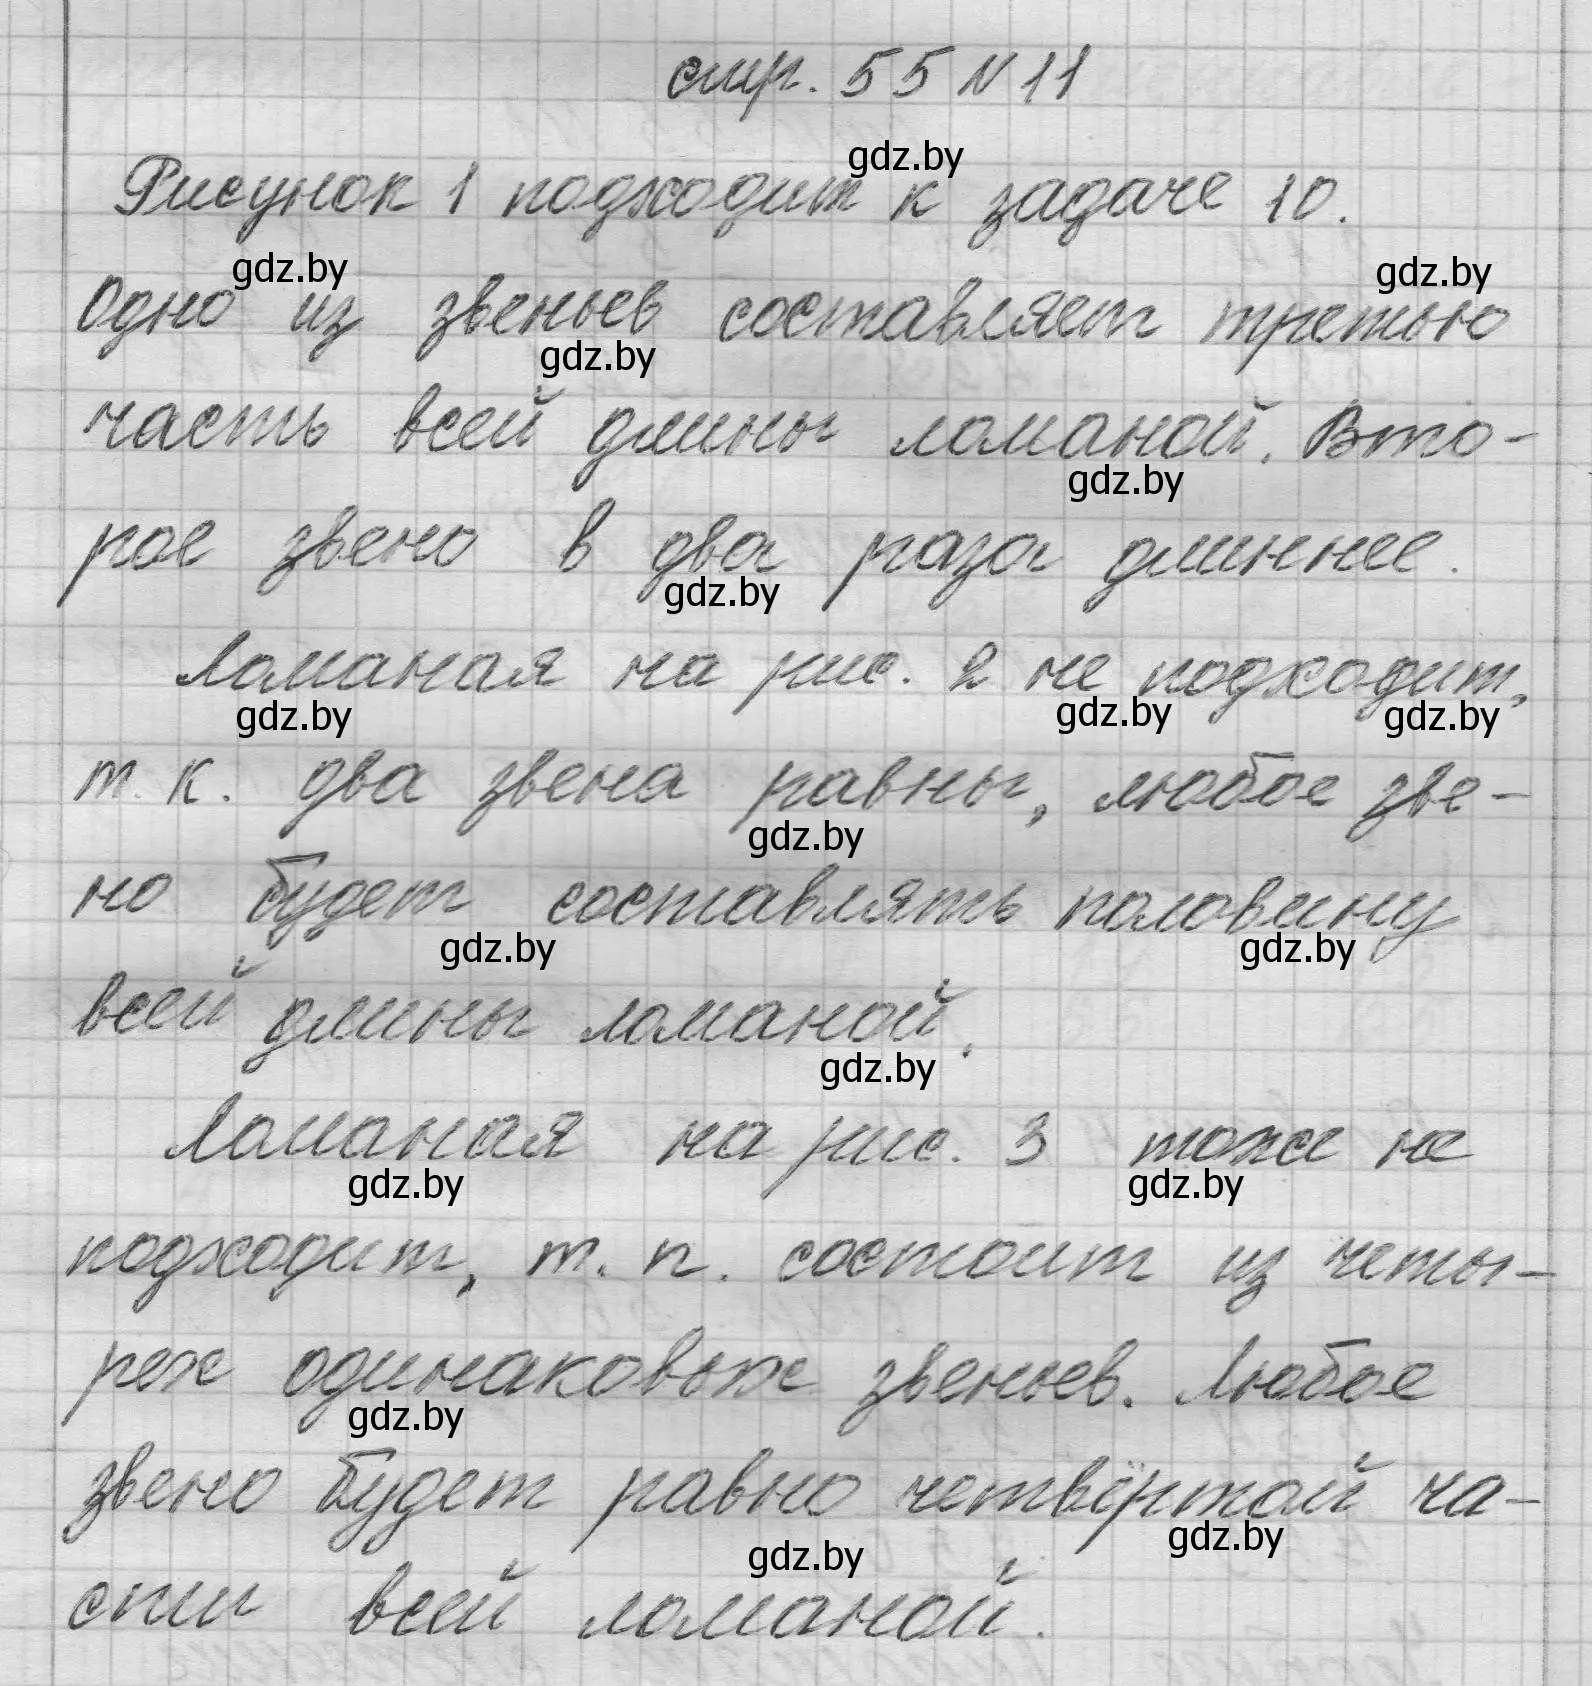 стр. 55 N 11
gdz.by
Рисунок 1 подходит к задаче 10.
gdz.by
gdz.by
Одно из звеньев составляет третью
gdz.by
часть всей длины ломаной. Вто-
gdz.by
рое звено в два раза длиннее.
gdz.by
Ломаная на рис. 2 не подходит,
gdz.by
gdz.by
gdz.by
т. к. два звена равны, любое зве-
gdz.by
но будет составлять половину
gdz.by
gdz.by
всей длины ломаной.
gdz.by
Ломаная на рис. 3 тоже не
gdz.by
gdz.by
подходит, т. к. состоит из четы-
рех одинаковых звеньев. Любое
gdz.by
звено будет равно четвёртой ча-
gdz.by
gdz.by
сти всей ломаной.